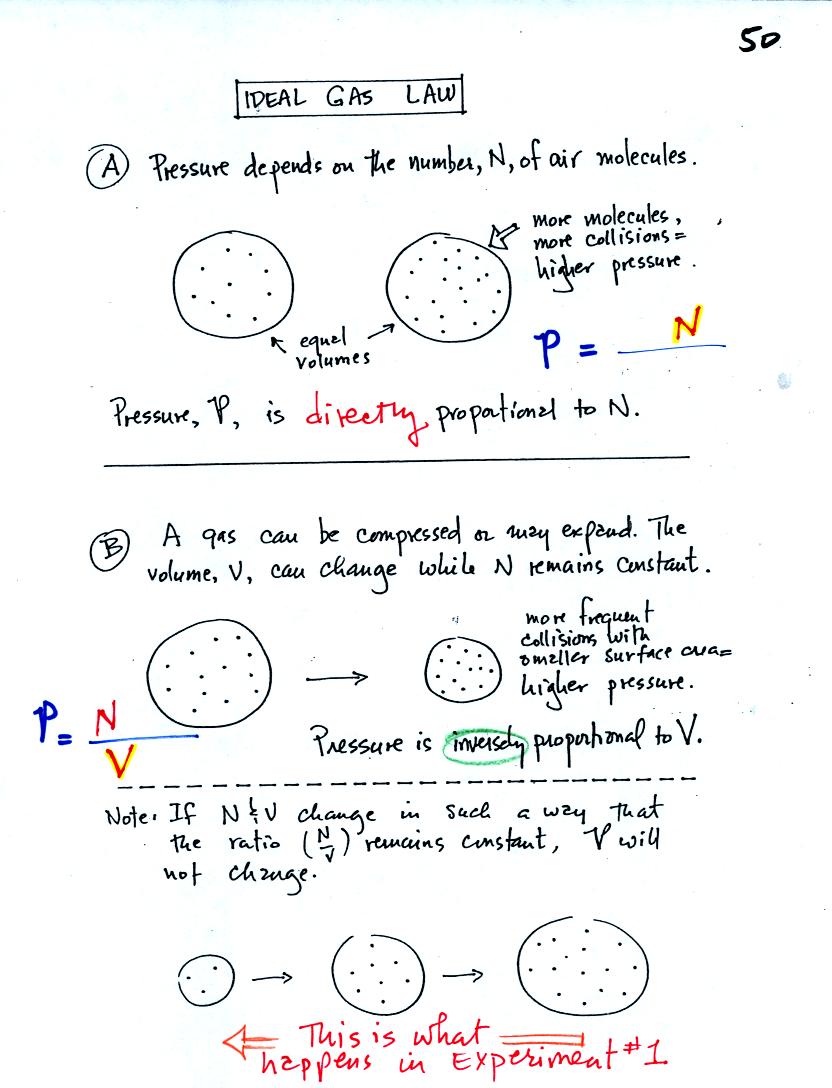 50
IDEAL GAS LAW
A Pressure depends on the number, N, of air molecules.
more molecules,
more collisions =
higher pressure.
equal
volumes
P = N
Pressure, P, is directly proportional to N.
B A gas can be compressed or may expand. The
volume, V, can change while N remains constant.
more frequent
collisions with
smaller surface area =
higher pressure.
P = N
V
Pressure is inversely proportional to V.
Note: If N & V change in such a way that
the ratio (N/V) remains constant, P will
not change.
This is what
happens in Experiment #1